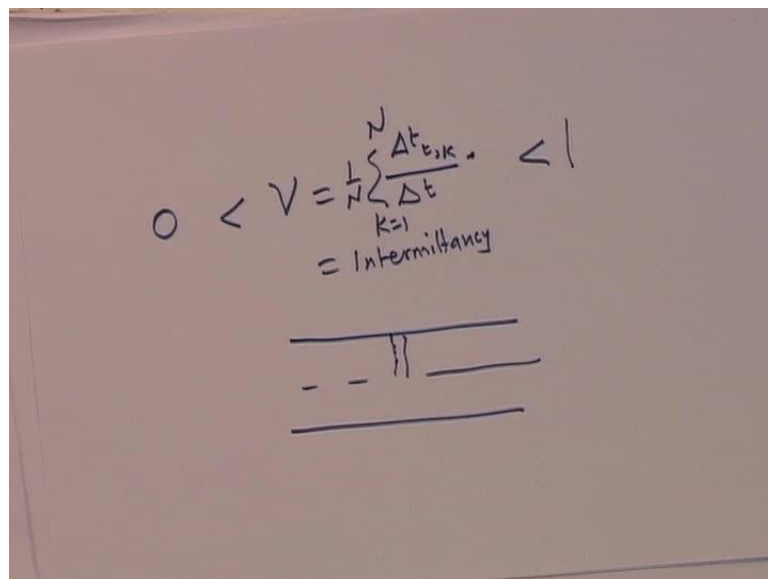 0 < V = 1/N Σ_{k=1}^{N} Δt_{t,k} / Δt . < 1
= Intermittancy